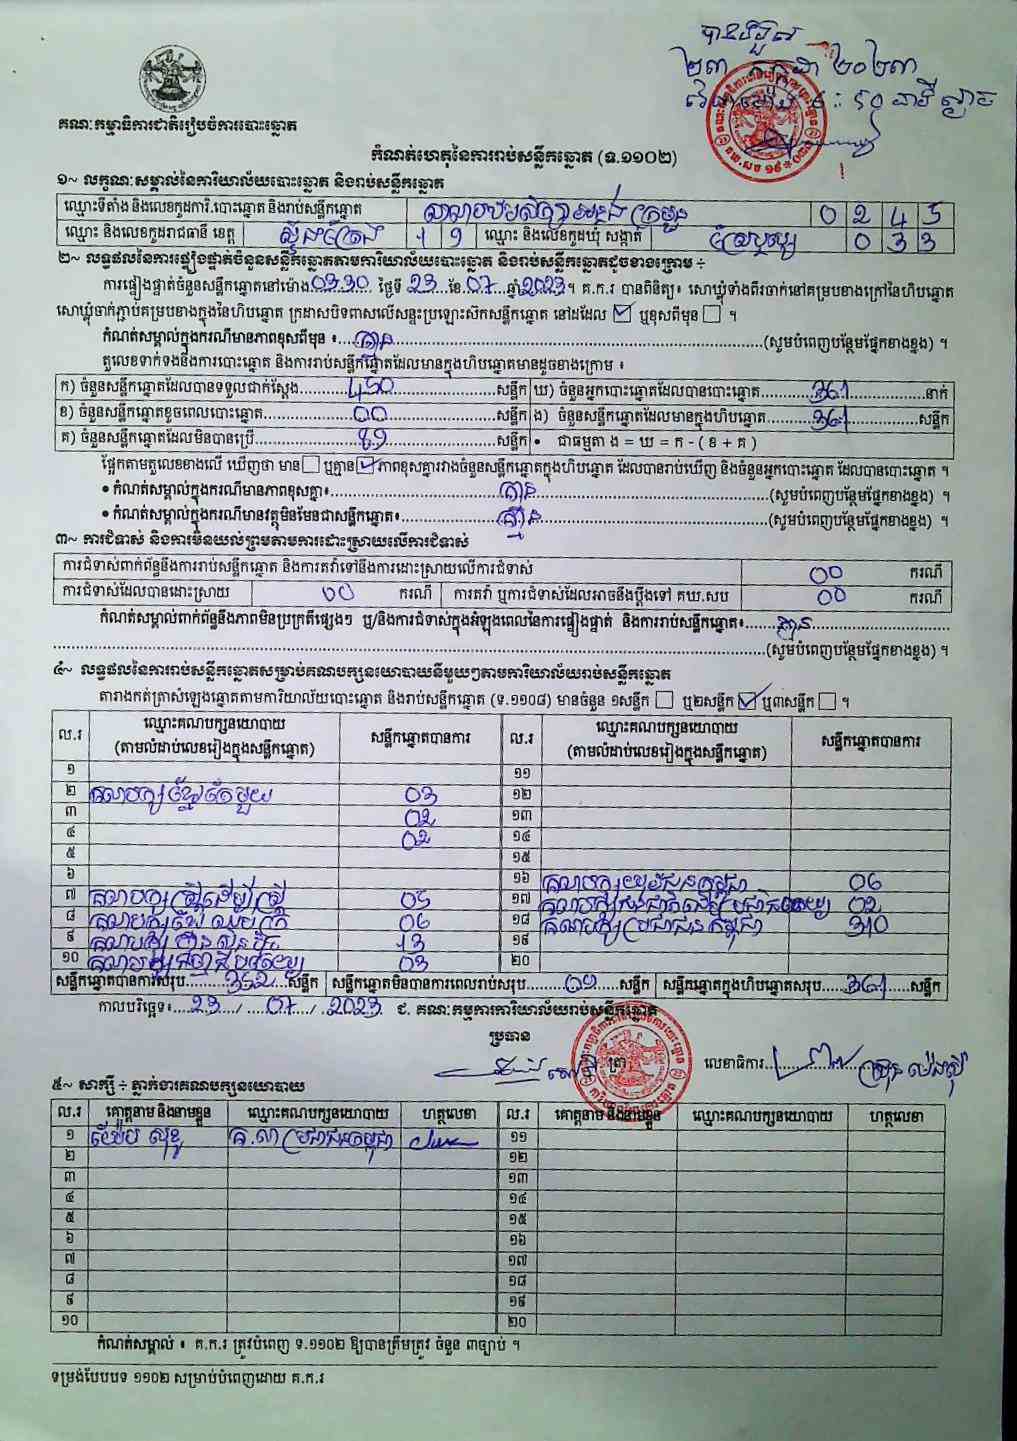 បានទទួល
២៣ កក្កដា ២០២៣
គណៈកម្មាធិការជាតិរៀបចំការបោះឆ្នោត
កំណត់ហេតុនៃការរាប់សន្លឹកឆ្នោត (ទ.១១០២)
១~ លក្ខណៈសម្គាល់នៃការិយាល័យបោះឆ្នោត និងរាប់សន្លឹកឆ្នោត
ឈ្មោះទីតាំង និងលេខកូដការិ.បោះឆ្នោត និងរាប់សន្លឹកឆ្នោត 0 2 4 5
ឈ្មោះ និងលេខកូដរាជធានី ខេត្ត ស្ទឹងត្រែង 1 9 ឈ្មោះ និងលេខកូដឃុំ សង្កាត់ 0 3 3
២~ លទ្ធផលនៃការផ្ទៀងផ្ទាត់ចំនួនសន្លឹកឆ្នោតតាមការិយាល័យបោះឆ្នោត និងរាប់សន្លឹកឆ្នោតដូចខាងក្រោម ÷
ការផ្ទៀងផ្ទាត់ចំនួនសន្លឹកឆ្នោតនៅម៉ោង 03:30 ថ្ងៃទី 23 ខែ 07 ឆ្នាំ 2023 ។ គ.ក.រ បានពិនិត្យ៖ សោឃ្លុំទាំងពីរចាក់នៅគម្របខាងក្រៅនៃហិបឆ្នោត
សោឃ្លុំចាក់ភ្ជាប់គម្របខាងក្នុងនៃហិបឆ្នោត ក្រដាសបិទពាសលើសន្ទះប្រឡោះសឹកសន្លឹកឆ្នោត នៅដដែល ☑ ឬខុសពីមុន ☐ ។
កំណត់សម្គាល់ក្នុងករណីមានភាពខុសពីមុន ៖ គ្មាន (សូមបំពេញបន្ថែមផ្នែកខាងខ្នង) ។
តួលេខទាក់ទងនឹងការបោះឆ្នោត និងការរាប់សន្លឹកឆ្នោតដែលមានក្នុងហិបឆ្នោតមានដូចខាងក្រោម ៖
ក) ចំនួនសន្លឹកឆ្នោតដែលបានទទួលជាក់ស្តែង 450 សន្លឹក ឃ) ចំនួនអ្នកបោះឆ្នោតដែលបានបោះឆ្នោត 361 នាក់
ខ) ចំនួនសន្លឹកឆ្នោតខូចពេលបោះឆ្នោត 00 សន្លឹក ង) ចំនួនសន្លឹកឆ្នោតដែលមានក្នុងហិបឆ្នោត 361 សន្លឹក
គ) ចំនួនសន្លឹកឆ្នោតដែលមិនបានប្រើ 89 សន្លឹក • ជាធម្មតា ង = ឃ = ក - ( ខ + គ )
ផ្អែកតាមតួលេខខាងលើ ឃើញថា មាន ☐ ឬគ្មាន ☑ ភាពខុសគ្នារវាងចំនួនសន្លឹកឆ្នោតក្នុងហិបឆ្នោត ដែលបានរាប់ឃើញ និងចំនួនអ្នកបោះឆ្នោត ដែលបានបោះឆ្នោត ។
• កំណត់សម្គាល់ក្នុងករណីមានភាពខុសគ្នា៖ គ្មាន (សូមបំពេញបន្ថែមផ្នែកខាងខ្នង) ។
• កំណត់សម្គាល់ក្នុងករណីមានវត្ថុមិនមែនជាសន្លឹកឆ្នោត៖ គ្មាន (សូមបំពេញបន្ថែមផ្នែកខាងខ្នង) ។
៣~ ការជំទាស់ និងការមិនយល់ព្រមតាមការដោះស្រាយលើការជំទាស់
ការជំទាស់ពាក់ព័ន្ធនឹងការរាប់សន្លឹកឆ្នោត និងការតវ៉ាទៅនឹងការដោះស្រាយលើការជំទាស់ 00 ករណី
ការជំទាស់ដែលបានដោះស្រាយ 00 ករណី ការតវ៉ា ឬការជំទាស់ដែលអាចនឹងប្តឹងទៅ គឃ.សប 00 ករណី
កំណត់សម្គាល់ពាក់ព័ន្ធនឹងភាពមិនប្រក្រតីផ្សេងៗ ឬ/និងការជំទាស់ក្នុងអំឡុងពេលនៃការផ្ទៀងផ្ទាត់ និងការរាប់សន្លឹកឆ្នោត៖ គ្មាន
(សូមបំពេញបន្ថែមផ្នែកខាងខ្នង) ។
៤~ លទ្ធផលនៃការរាប់សន្លឹកឆ្នោតសម្រាប់គណបក្សនយោបាយនីមួយៗតាមការិយាល័យរាប់សន្លឹកឆ្នោត
តារាងកត់ត្រាសំឡេងឆ្នោតតាមការិយាល័យបោះឆ្នោត និងរាប់សន្លឹកឆ្នោត (ទ.១១០៨) មានចំនួន ១សន្លឹក ☐ ឬ២សន្លឹក ☑ ឬ៣សន្លឹក ☐ ។
ល.រ ឈ្មោះគណបក្សនយោបាយ (តាមលំដាប់លេខរៀងក្នុងសន្លឹកឆ្នោត) សន្លឹកឆ្នោតបានការ ល.រ ឈ្មោះគណបក្សនយោបាយ (តាមលំដាប់លេខរៀងក្នុងសន្លឹកឆ្នោត) សន្លឹកឆ្នោតបានការ
១ ១១
២ គណបក្សខ្មែរតែមួយ 03 ១២
៣ 02 ១៣
៤ 02 ១៤
៥ ១៥
៦ ១៦ គណបក្សយុវជនកម្ពុជា 06
៧ គណបក្សស្ត្រីដើម្បីស្ត្រី 05 ១៧ 02
៨ 06 ១៨ គណបក្សប្រជាជនកម្ពុជា 310
៩ គណបក្ស ហ្វ៊ុនស៊ិនប៉ិច 13 ១៩
១០ 03 ២០
សន្លឹកឆ្នោតបានការសរុប 352 សន្លឹក សន្លឹកឆ្នោតមិនបានការពេលរាប់សរុប 09 សន្លឹក សន្លឹកឆ្នោតក្នុងហិបឆ្នោតសរុប 361 សន្លឹក
កាលបរិច្ឆេទ៖ 23 / 07 / 2023 ជ. គណៈកម្មការការិយាល័យរាប់សន្លឹកឆ្នោត
ប្រធាន
ត្រា លេខាធិការ
៥~ សាក្សី ÷ ភ្នាក់ងារគណបក្សនយោបាយ
ល.រ គោត្តនាម និងនាមខ្លួន ឈ្មោះគណបក្សនយោបាយ ហត្ថលេខា ល.រ គោត្តនាម និងនាមខ្លួន ឈ្មោះគណបក្សនយោបាយ ហត្ថលេខា
១ គ.ប ប្រជាជនកម្ពុជា ១១
២ ១២
៣ ១៣
៤ ១៤
៥ ១៥
៦ ១៦
៧ ១៧
៨ ១៨
៩ ១៩
១០ ២០
កំណត់សម្គាល់ ៖ គ.ក.រ ត្រូវបំពេញ ទ.១១០២ ឱ្យបានត្រឹមត្រូវ ចំនួន ៣ច្បាប់ ។
ទម្រង់បែបបទ ១១០២ សម្រាប់បំពេញដោយ គ.ក.រ